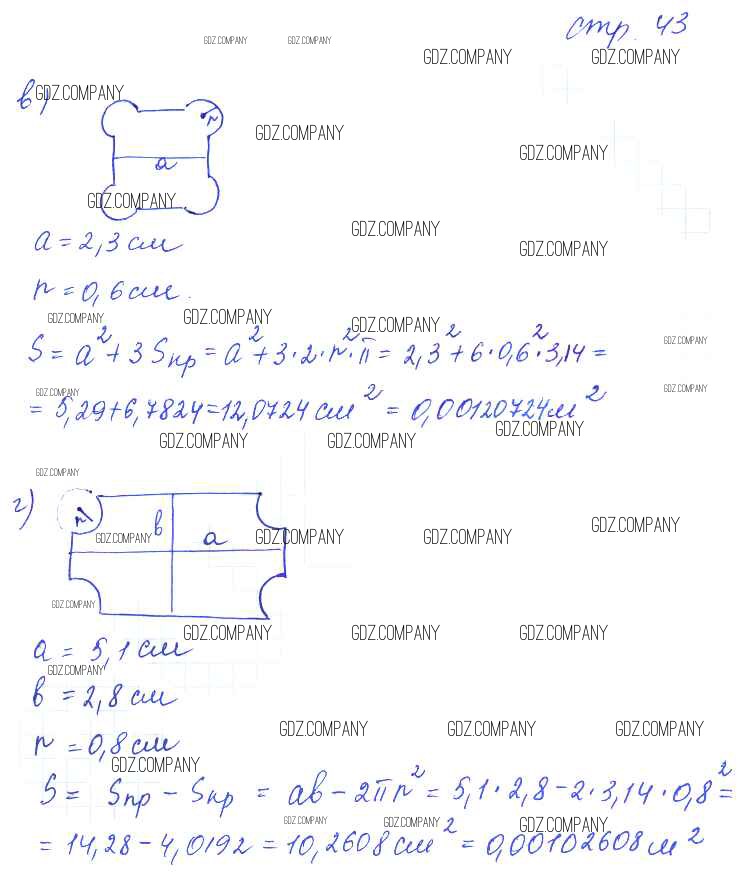 стр. 43
GDZ.COMPANY GDZ.COMPANY
GDZ.COMPANY GDZ.COMPANY
в) GDZ.COMPANY
r
GDZ.COMPANY
GDZ.COMPANY
a
GDZ.COMPANY
GDZ.COMPANY
a = 2,3 см
GDZ.COMPANY
r = 0,6 см.
GDZ.COMPANY GDZ.COMPANY GDZ.COMPANY
GDZ.COMPANY
S = a² + 3 Sкр = a² + 3·2·r²·π = 2,3² + 6·0,6²·3,14 =
GDZ.COMPANY GDZ.COMPANY
= 5,29+6,7824=12,0724 см² = 0,00120724 м²
GDZ.COMPANY GDZ.COMPANY GDZ.COMPANY
GDZ.COMPANY
г) r в a
GDZ.COMPANY GDZ.COMPANY GDZ.COMPANY GDZ.COMPANY
GDZ.COMPANY
GDZ.COMPANY GDZ.COMPANY GDZ.COMPANY
a = 5,1 см
GDZ.COMPANY
в = 2,8 см
GDZ.COMPANY GDZ.COMPANY GDZ.COMPANY
r = 0,8 см
GDZ.COMPANY
S = Sпр − Sкр = aв − 2πr² = 5,1·2,8 − 2·3,14·0,8² =
GDZ.COMPANY GDZ.COMPANY GDZ.COMPANY
= 14,28 − 4,0192 = 10,2608 см² = 0,00102608 м²